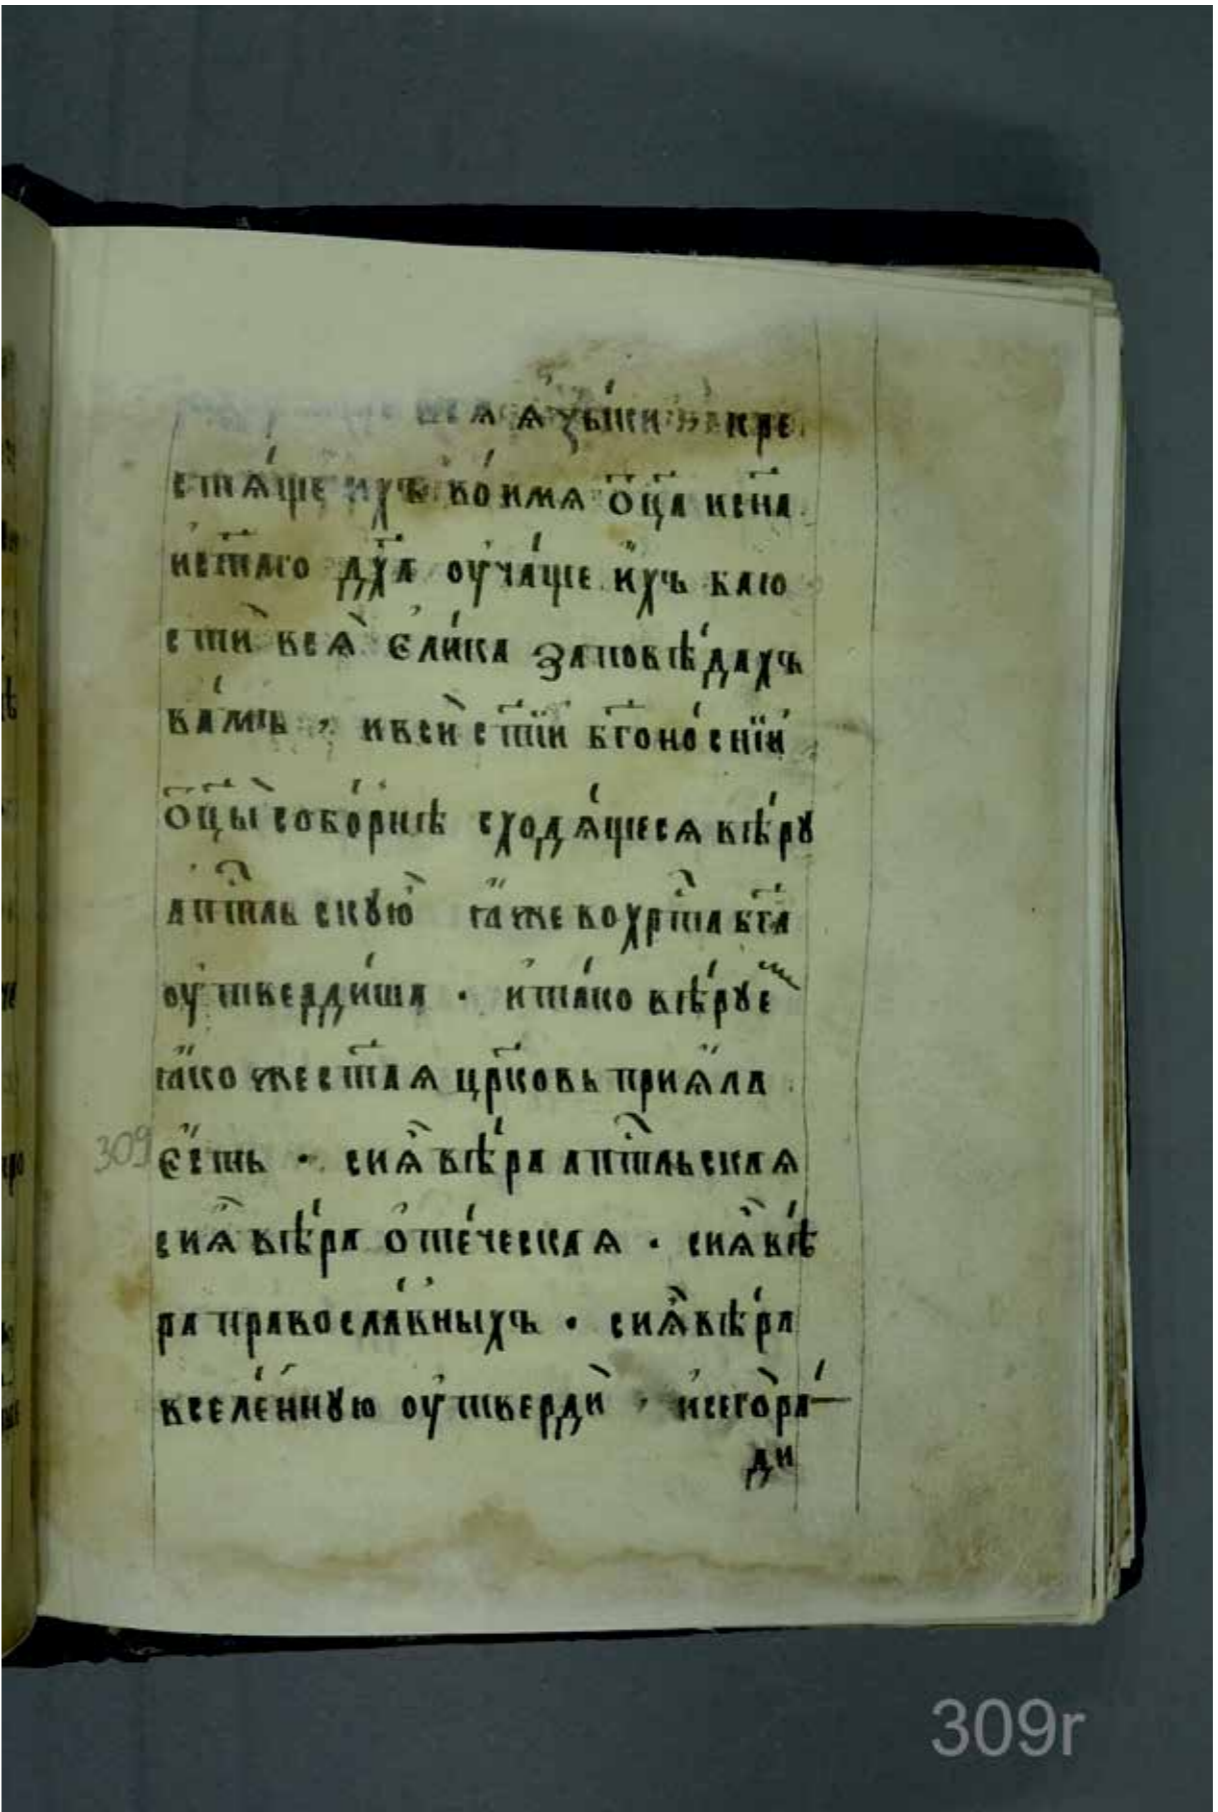 всѧ ѧ҆зы́ки кре
стѧ́ще и҆́хъ во́имѧ о҆ц҃а исн҃а
и҆ст҃аго дх҃а ѹ҆ча́ще и҆̀хъ блю
стѝ всѧ̀ є҆ли́ка заповѣ́дахъ
ва́мъ , ивсѝ ст҃і́и бг҃оно́снїи
о҆ц҃ы̀ собо́рнѣ сходѧ́щесѧ вѣ́рꙋ
а҆пⷭ҇тльскꙋю̀ ꙗ҆́же вохрⷭ҇та бг҃а
ѹ҆тверди́ша · и҆та́ко вѣ́рꙋеⷨ
ꙗ҆́коже ст҃аѧ цр҃ковь приѧ́ла
є҆́сть · сиѧ̀ вѣ́ра а҆пⷭ҇тльскаѧ
сиѧ̀ вѣ́ра о҆те́ческаѧ · сиѧ̀ вѣ́
ра правосла́вныхъ · сиѧ̀ вѣ́ра
вселе́ннꙋю ѹ҆твердѝ , и҆сегѡ̀ ра́
ди
309
309r